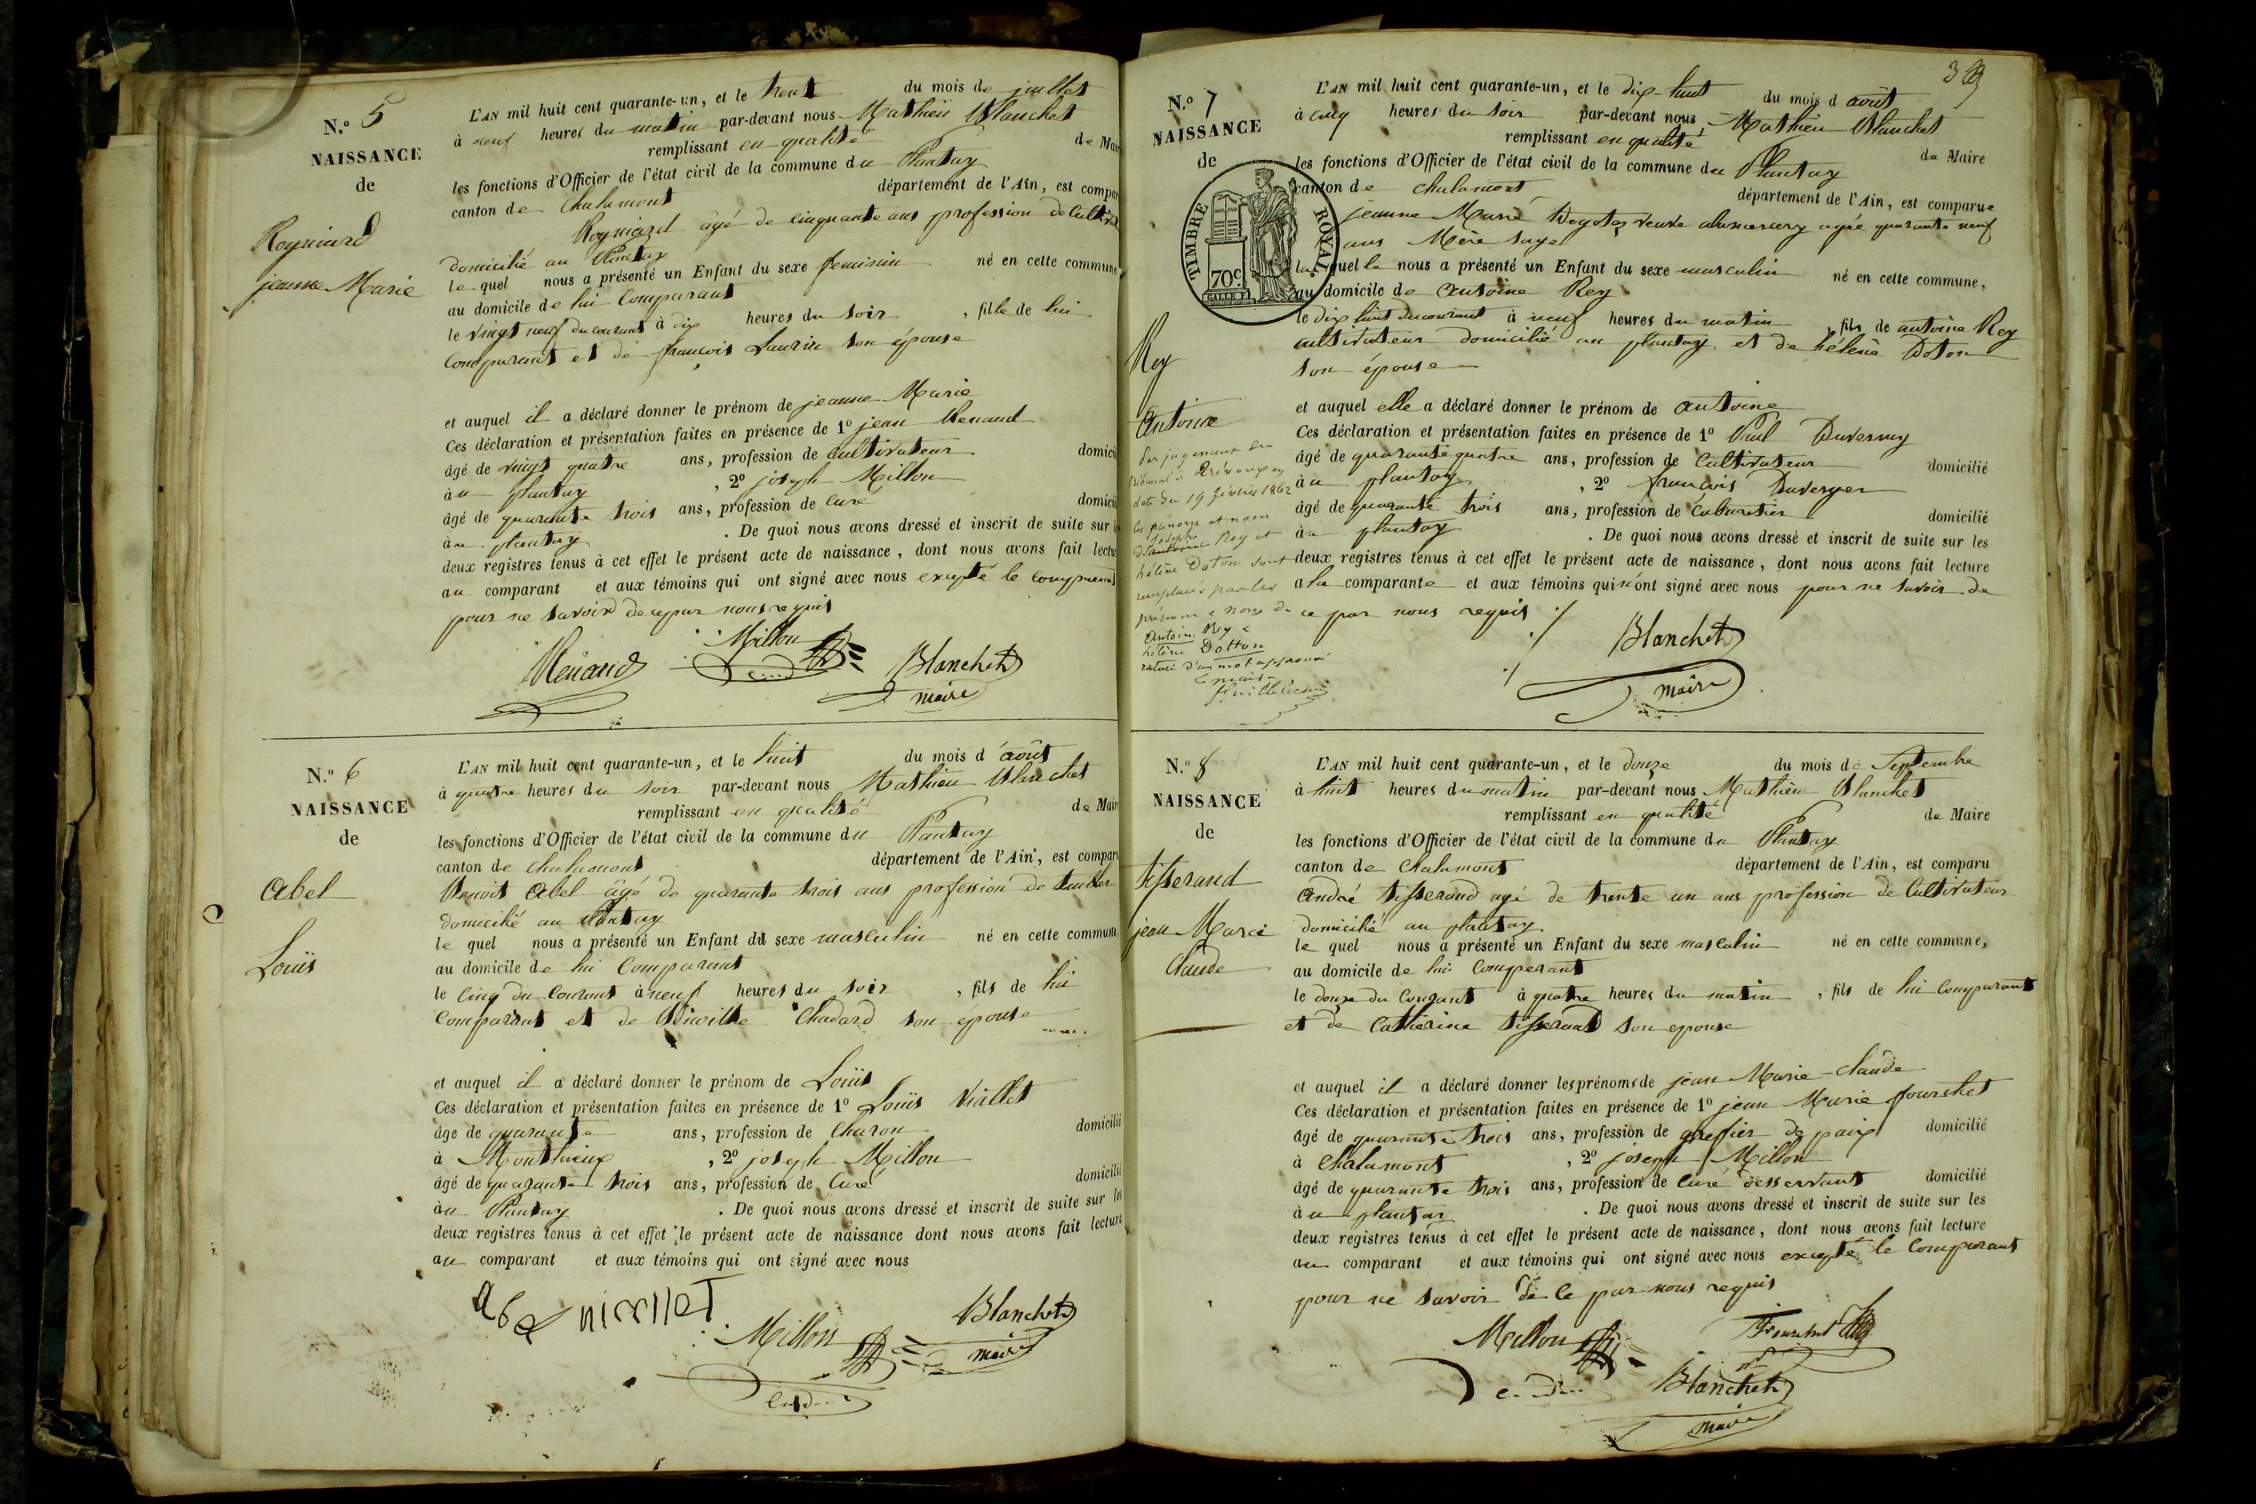 N.º 5
NAISSANCE
de
Rogniard
jeanne Marie
L'AN mil huit cent quarante-un, et le trente du mois de juillet
à neuf heures du matin par-devant nous Mathieu Blanchet
remplissant en qualité de Mair
les fonctions d'Officier de l'état civil de la commune du Plantay
canton de Chalamont département de l'Ain, est compar
Rogniard âgé de cinquante ans profession de Cultiv
domicilié au Plantay
le quel nous a présenté un Enfant du sexe feminin né en cette commune
au domicile de lui Comparant
le vingt neuf du courant à dix heures du soir, fille de lui
Comparant et de françois Laurin son épouse
et auquel il a déclaré donner le prénom de jeanne Marie
Ces déclaration et présentation faites en présence de 1º jean Renaud
âgé de vingt quatre ans, profession de cultivateur domicil
àu plantay, 2º joseph Millon
âgé de quarante trois ans, profession de curé domicil
àu plantay. De quoi nous avons dressé et inscrit de suite sur le
deux registres tenus à cet effet le présent acte de naissance, dont nous avons fait lectu
au comparant et aux témoins qui ont signé avec nous excepté le comparant
pour ne savoir de ce par nous requis
Renaud Millon Blanchet
maire
N.º 6
NAISSANCE
de
Abel
Louis
L'AN mil huit cent quarante-un, et le huit du mois d'août
à quatre heures du soir par-devant nous Mathieu Blanchet
remplissant en qualité de Mair
les fonctions d'Officier de l'état civil de la commune du Plantay
canton de Chalamont département de l'Ain, est compar
Benoit Abel âgé de quarante trois ans profession de
domicilié au Plantay
le quel nous a présenté un Enfant du sexe masculin né en cette commune
au domicile de lui Comparant
le cinq du Courant à neuf heures du soir, fils de lui
Comparant et de Chadard son épouse
et auquel il a déclaré donner le prénom de Louis
Ces déclaration et présentation faites en présence de 1º Louis Viallet
âgé de quarante ans, profession de Charon domicilié
à Monthieux, 2º joseph Millon
âgé de quarante trois ans, profession de Curé domicilié
àu Plantay. De quoi nous avons dressé et inscrit de suite sur les
deux registres tenus à cet effet le présent acte de naissance dont nous avons fait lecture
au comparant et aux témoins qui ont signé avec nous
Millon Blanchet
maire
N.º 7
NAISSANCE
de
TIMBRE ROYAL
70c
Rey
Antoine
Par jugement du
tribunal de Trévoux en
date du 19 février 1862
les prénom et nom
d'antoine Joseph Rey et
hélène Doton sont
remplacés par les
prénom & noms de
Antoine Rey &
hélène Dotton
rature d'un mot approuvé
Le maire
L'AN mil huit cent quarante-un, et le dix-huit du mois d août
à cinq heures du soir par-devant nous Mathieu Blanchet
remplissant en qualité de Maire
les fonctions d'Officier de l'état civil de la commune du Plantay
canton de Chalamont département de l'Ain, est comparue
jeanne Marie veuve agée quarante neuf
ans Mère sage
la quelle nous a présenté un Enfant du sexe masculin né en cette commune,
au domicile de antoine Rey
le dix huit du courant à neuf heures du matin, fils de antoine Rey
cultivateur domicilié au plantay et de hélène Doton
son épouse
et auquel elle a déclaré donner le prénom de antoine
Ces déclaration et présentation faites en présence de 1º Paul Duvernay
âgé de quarante quatre ans, profession de Cultivateur domicilié
àu plantay, 2º françois Duverger
âgé de quarante trois ans, profession de Cabaretier domicilié
àu plantay. De quoi nous avons dressé et inscrit de suite sur les
deux registres tenus à cet effet le présent acte de naissance, dont nous avons fait lecture
a la comparante et aux témoins qui n'ont signé avec nous pour ne savoir de
ce par nous requis
Blanchet
maire
N.º 8
NAISSANCE
de
tisserand
jean Marie
Claude
L'AN mil huit cent quarante-un, et le douze du mois de Septembre
à huit heures du matin par-devant nous Mathieu Blanchet
remplissant en qualité de Maire
les fonctions d'Officier de l'état civil de la commune du Plantay
canton de Chalamont département de l'Ain, est comparu
André tisserand agé de trente un ans profession de Cultivateur
domicilié au plantay
le quel nous a présenté un Enfant du sexe masculin né en cette commune,
au domicile de lui Comparant
le douze du Courant à quatre heures du matin, fils de lui Comparant
et de Catherine tisserand son epouse
et auquel il a déclaré donner les prénoms de jean Marie-Claude
Ces déclaration et présentation faites en présence de 1º jean Marie fourchet
âgé de quarante trois ans, profession de greffier de paix domicilié
à Chalamont, 2º joseph Millon
âgé de quarante trois ans, profession de Curé desservant domicilié
àu plantay. De quoi nous avons dressé et inscrit de suite sur les
deux registres tenus à cet effet le présent acte de naissance, dont nous avons fait lecture
au comparant et aux témoins qui ont signé avec nous excepté le Comparant
pour ne savoir de ce par nous requis
Millon Fourchet
Blanchet
maire